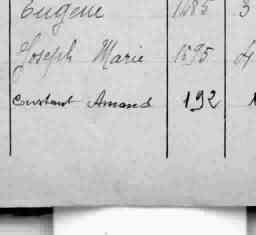 Eugène 1485 3
Joseph Marie 1595 4
Constant Amand 192